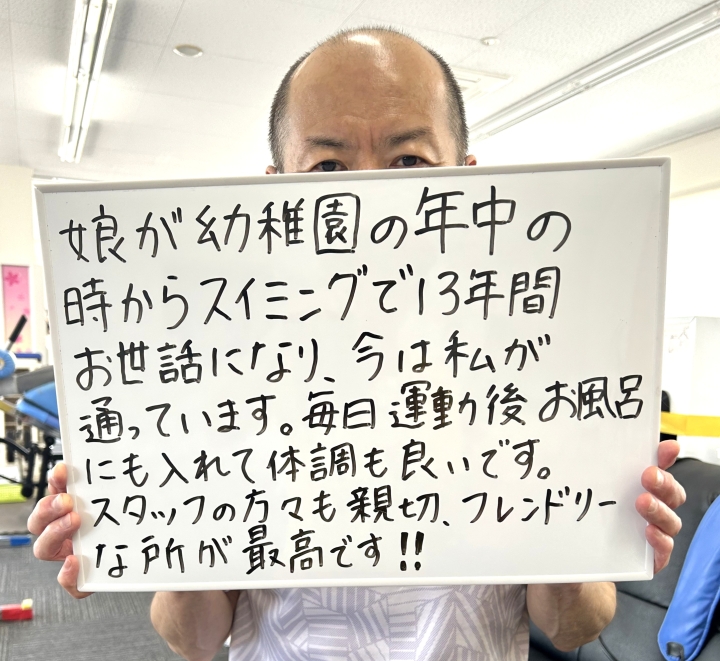 娘が幼稚園の年中の
時からスイミングで13年間
お世話になり、今は私が
通っています。毎日運動後お風呂
にも入れて体調も良いです。
スタッフの方々も親切、フレンドリー
な所が最高です!!